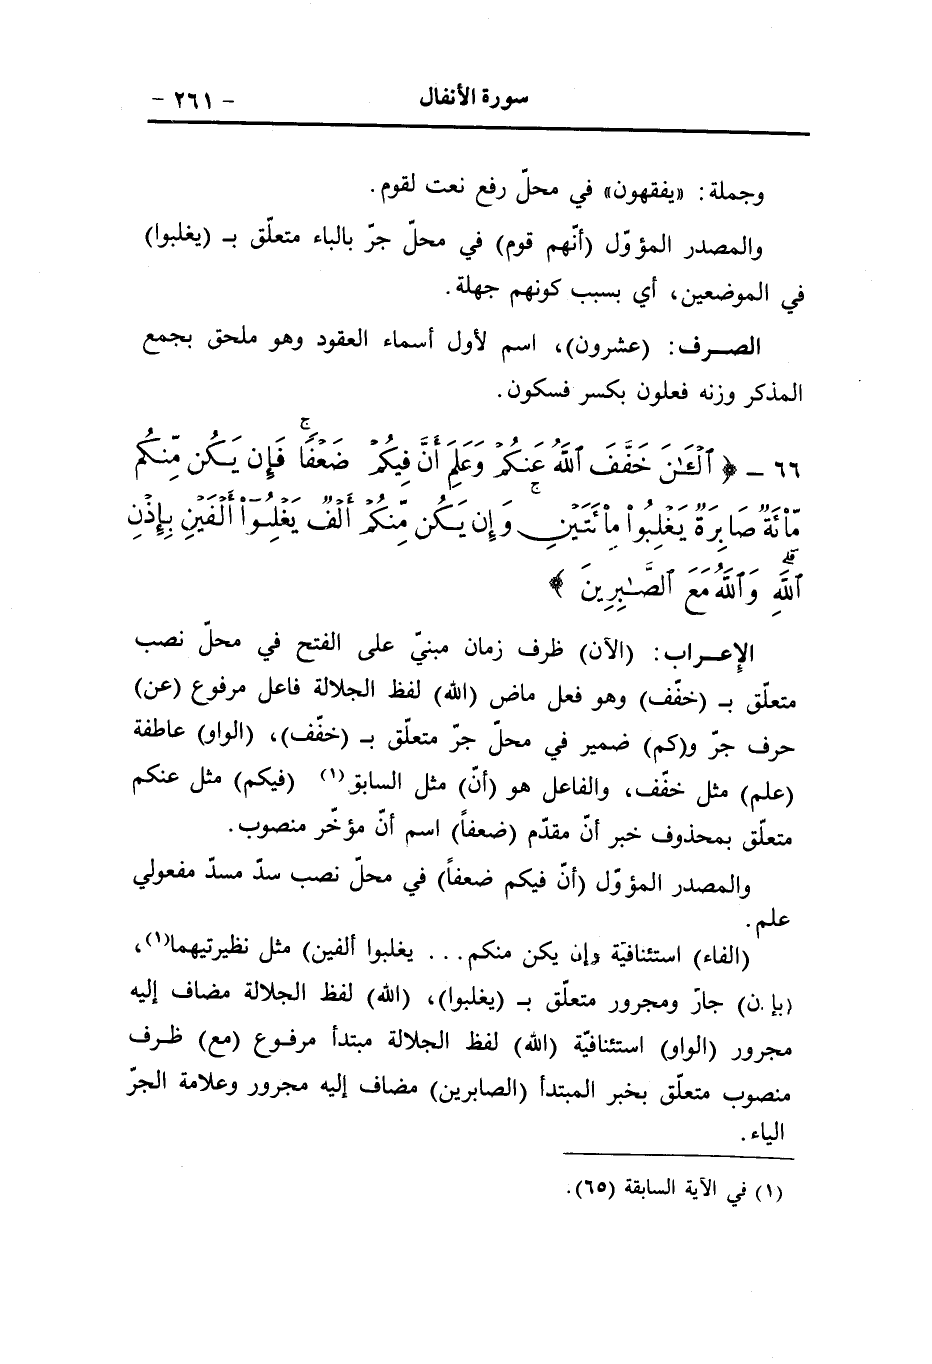 سورة الأنفال - ٢٦١ -
وجملة: «يفقهون» في محلّ رفع نعت لقوم.
والمصدر المؤوّل (أنّهم قوم) في محلّ جرّ بالباء متعلّق بـ (يغلبوا)
في الموضعين، أي بسبب كونهم جهلة.
الصـرف: (عشرون)، اسم لأول أسماء العقود وهو ملحق بجمع
المذكر وزنه فعلون بكسر فسكون.
٦٦ - ﴿ ٱلْـَٰٔنَ خَفَّفَ ٱللَّهُ عَنكُمْ وَعَلِمَ أَنَّ فِيكُمْ ضَعْفًا ۚ فَإِن يَكُن مِّنكُم
مِّائَةٌ صَابِرَةٌ يَغْلِبُوا۟ مِا۟ئَتَيْنِ ۚ وَإِن يَكُن مِّنكُمْ أَلْفٌ يَغْلِبُوٓا۟ أَلْفَيْنِ بِإِذْنِ
ٱللَّهِ ۗ وَٱللَّهُ مَعَ ٱلصَّٰبِرِينَ ﴾
الإعـراب: (الآن) ظرف زمان مبنيّ على الفتح في محلّ نصب
متعلّق بـ (خفّف) وهو فعل ماض (الله) لفظ الجلالة فاعل مرفوع (عن)
حرف جرّ و(كم) ضمير في محلّ جرّ متعلّق بـ (خفّف)، (الواو) عاطفة
(علم) مثل خفّف، والفاعل هو (أنّ) مثل السابق(١) (فيكم) مثل عنكم
متعلّق بمحذوف خبر أنّ مقدّم (ضعفاً) اسم أنّ مؤخّر منصوب.
والمصدر المؤوّل (أنّ فيكم ضعفاً) في محلّ نصب سدّ مسدّ مفعولي
علم.
(الفاء) استئنافيّة وإن يكن منكم... يغلبوا ألفين) مثل نظيرتيهما(١)،
(بإ.ن) جارّ ومجرور متعلّق بـ (يغلبوا)، (الله) لفظ الجلالة مضاف إليه
مجرور (الواو) استئنافيّة (الله) لفظ الجلالة مبتدأ مرفـوع (مع) ظـرف
منصوب متعلّق بخبر المبتدأ (الصابرين) مضاف إليه مجرور وعلامة الجرّ
الياء.
(١) في الآية السابقة (٦٥).